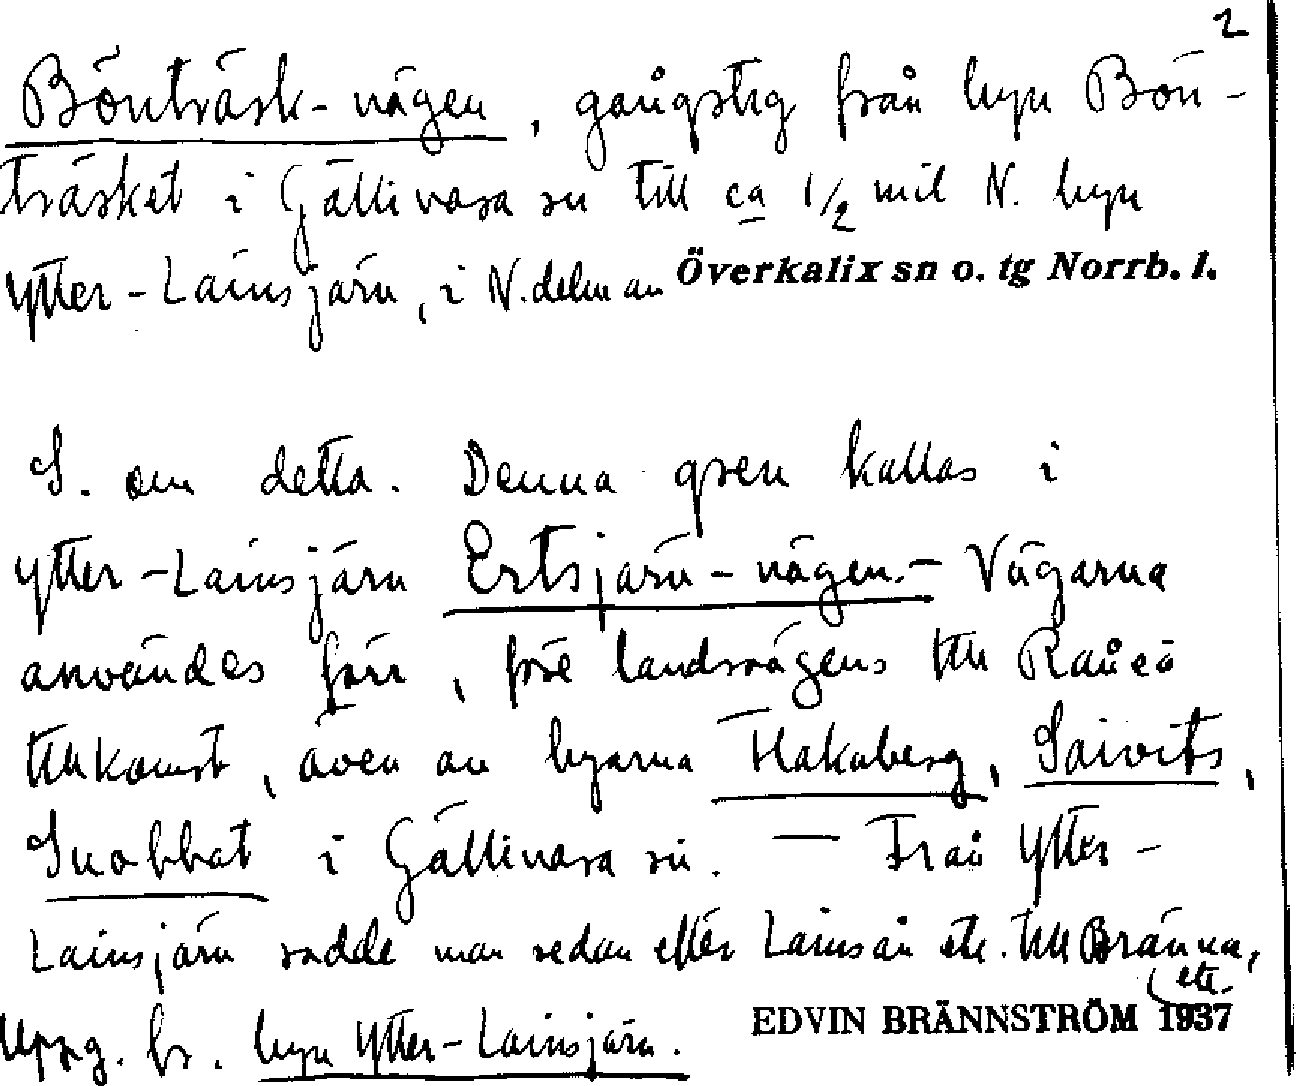 2
Bönträsk-vägen, gångstig från byn Bön-
träsket i Gällivara sn till ca 1/2 mil N. byn
Ytter-Lainsjärv, i N. delen av Överkalix sn o. tg Norrb. l.
S. om detta. Denna gren kallas i
Ytter-Lainsjärv Ertsjärv-vägen. - Vägarna
användes förr, före landsvägens till
tillkomst, även av byarna Hakaberg, Saivits,
Snobbat i Gällivara sn. — Från Ytter-
Lainsjärv rodde man sedan efter Lainsån etc. till Bränna,
etc.
Uppg. br. byn Ytter-Lainsjärv.
EDVIN BRÄNNSTRÖM 1937